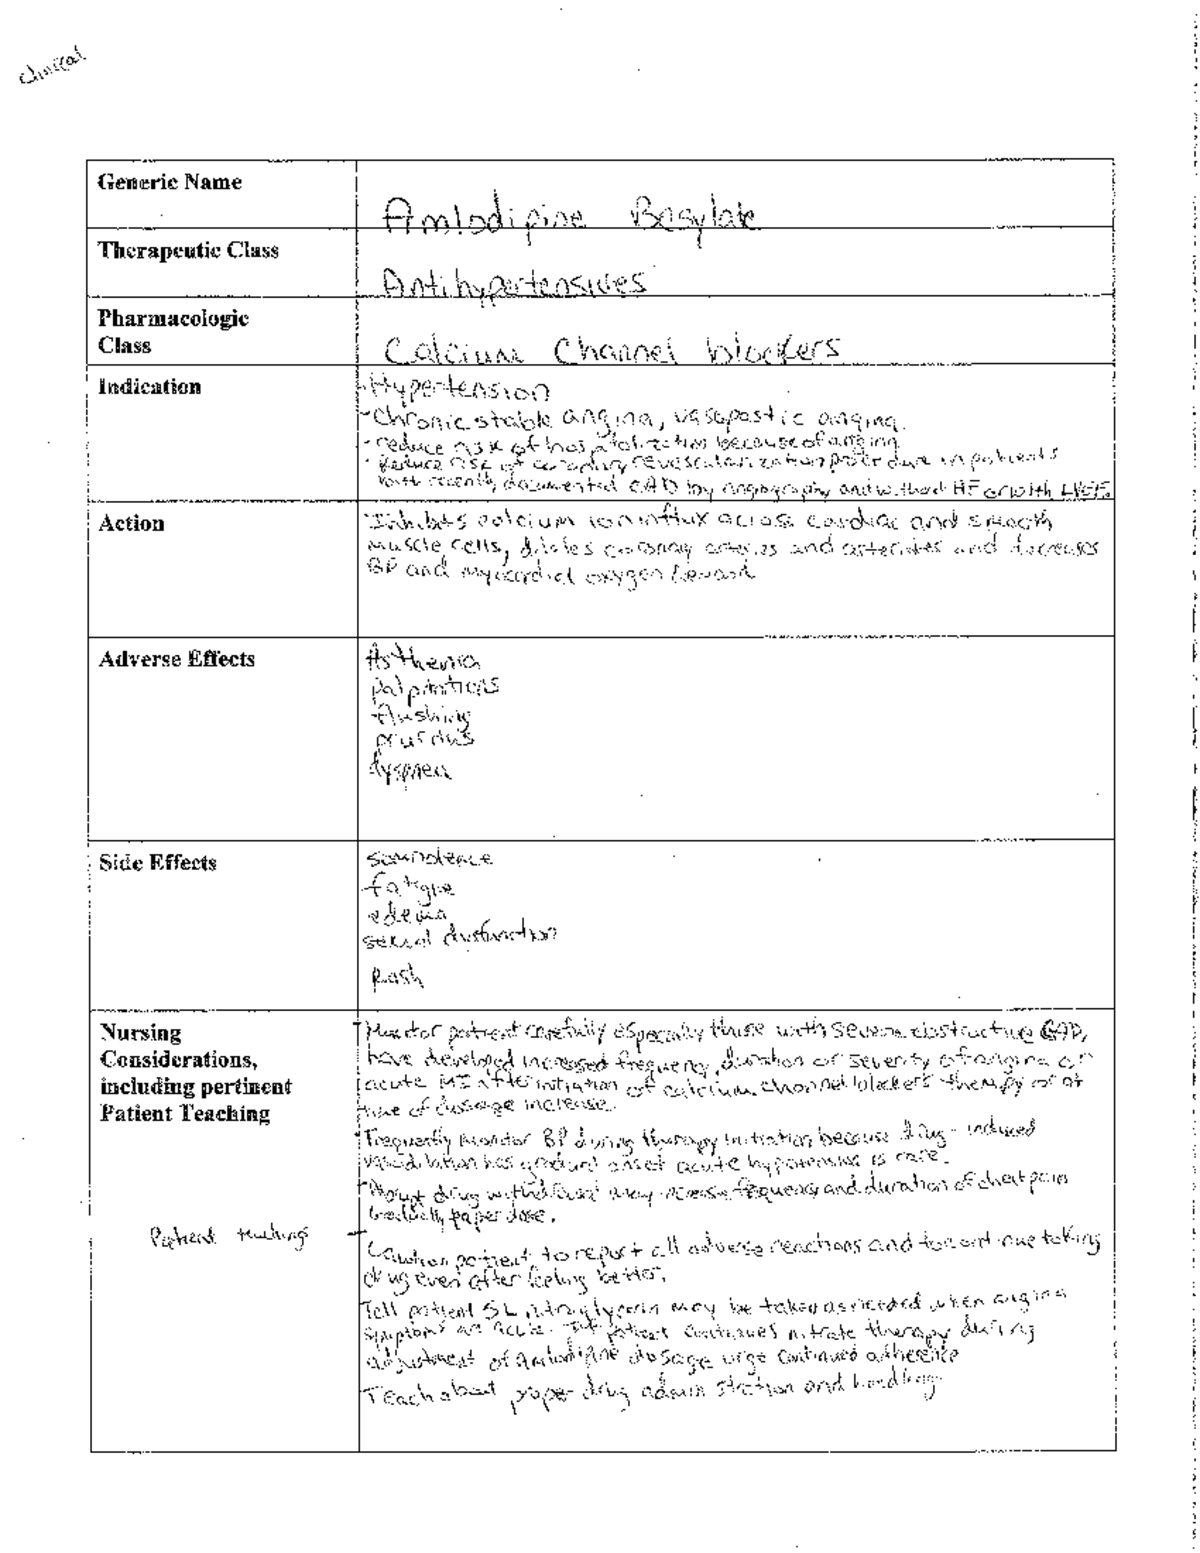 Clinical
Generic Name
Amlodipine Besylate
Therapeutic Class
Antihypertensives
Pharmacologic
Class
Calcium Channel blockers
Indication
-Hypertension
-Chronic stable angina, vasopastic angina.
- reduce risk of hospitalization because of angina
- Reduce risk of coronary revascularization procedure in patients
with recently documented CAD by angiography and without HF or with LVEF
Action
-Inhibits calcium ion influx across cardiac and smooth
muscle cells, dilates coronary arteries and arterioles and decreases
BP and myocardial oxygen demand
Adverse Effects
Asthenia
palpitations
flushing
pruritus
dyspnea
Side Effects
somnolence
fatigue
edema
sexual dysfunction
Rash
Nursing
Considerations,
including pertinent
Patient Teaching
-Monitor patient carefully especially those with severe obstructive CAD,
have developed increased frequency, duration or severity of angina or
acute MI after initiation of calcium channel blockers therapy or at
time of dosage increase.
-Frequently monitor BP during therapy initiation because drug-induced
vasodilation has gradual onset acute hypotension is rare.
-Abrupt drug withdrawal may increase frequency and duration of chest pain
Gradually taper dose.
Patient teachings
- Caution patient to report all adverse reactions and to continue taking
drug even after feeling better.
Tell patient SL nitroglycerin may be taken as needed when angina
symptoms are acute. If patient continues nitrate therapy during
adjustment of amlodipine dosage urge continued adherence
Teach about proper drug administration and handling